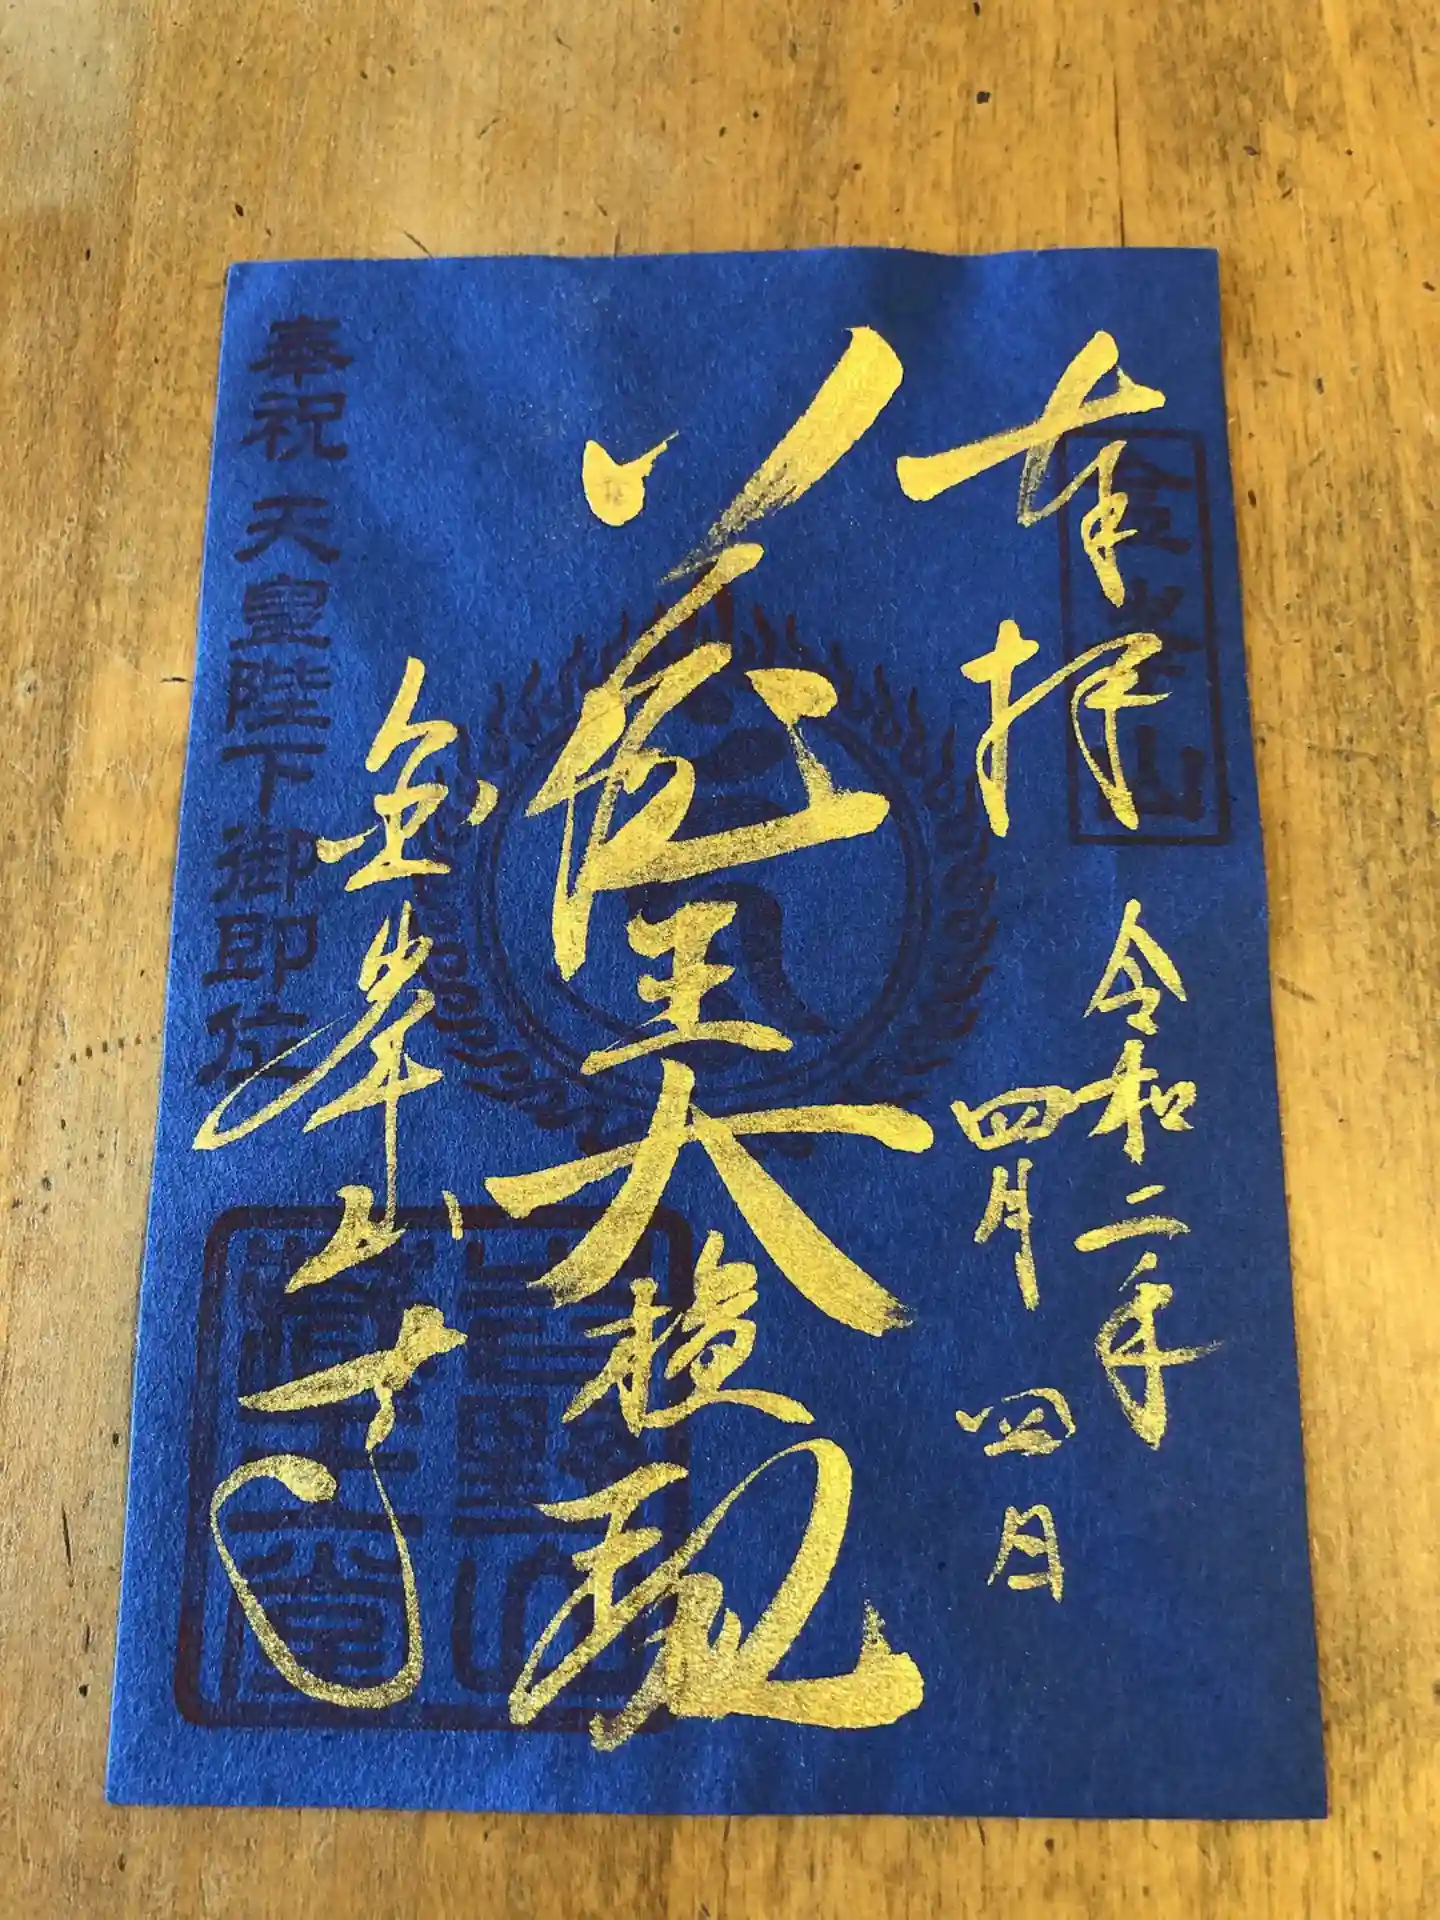 奉拝
金峯山
令和二年
四月四日
蔵王大権現
金峯山寺
奉祝 天皇陛下御即位